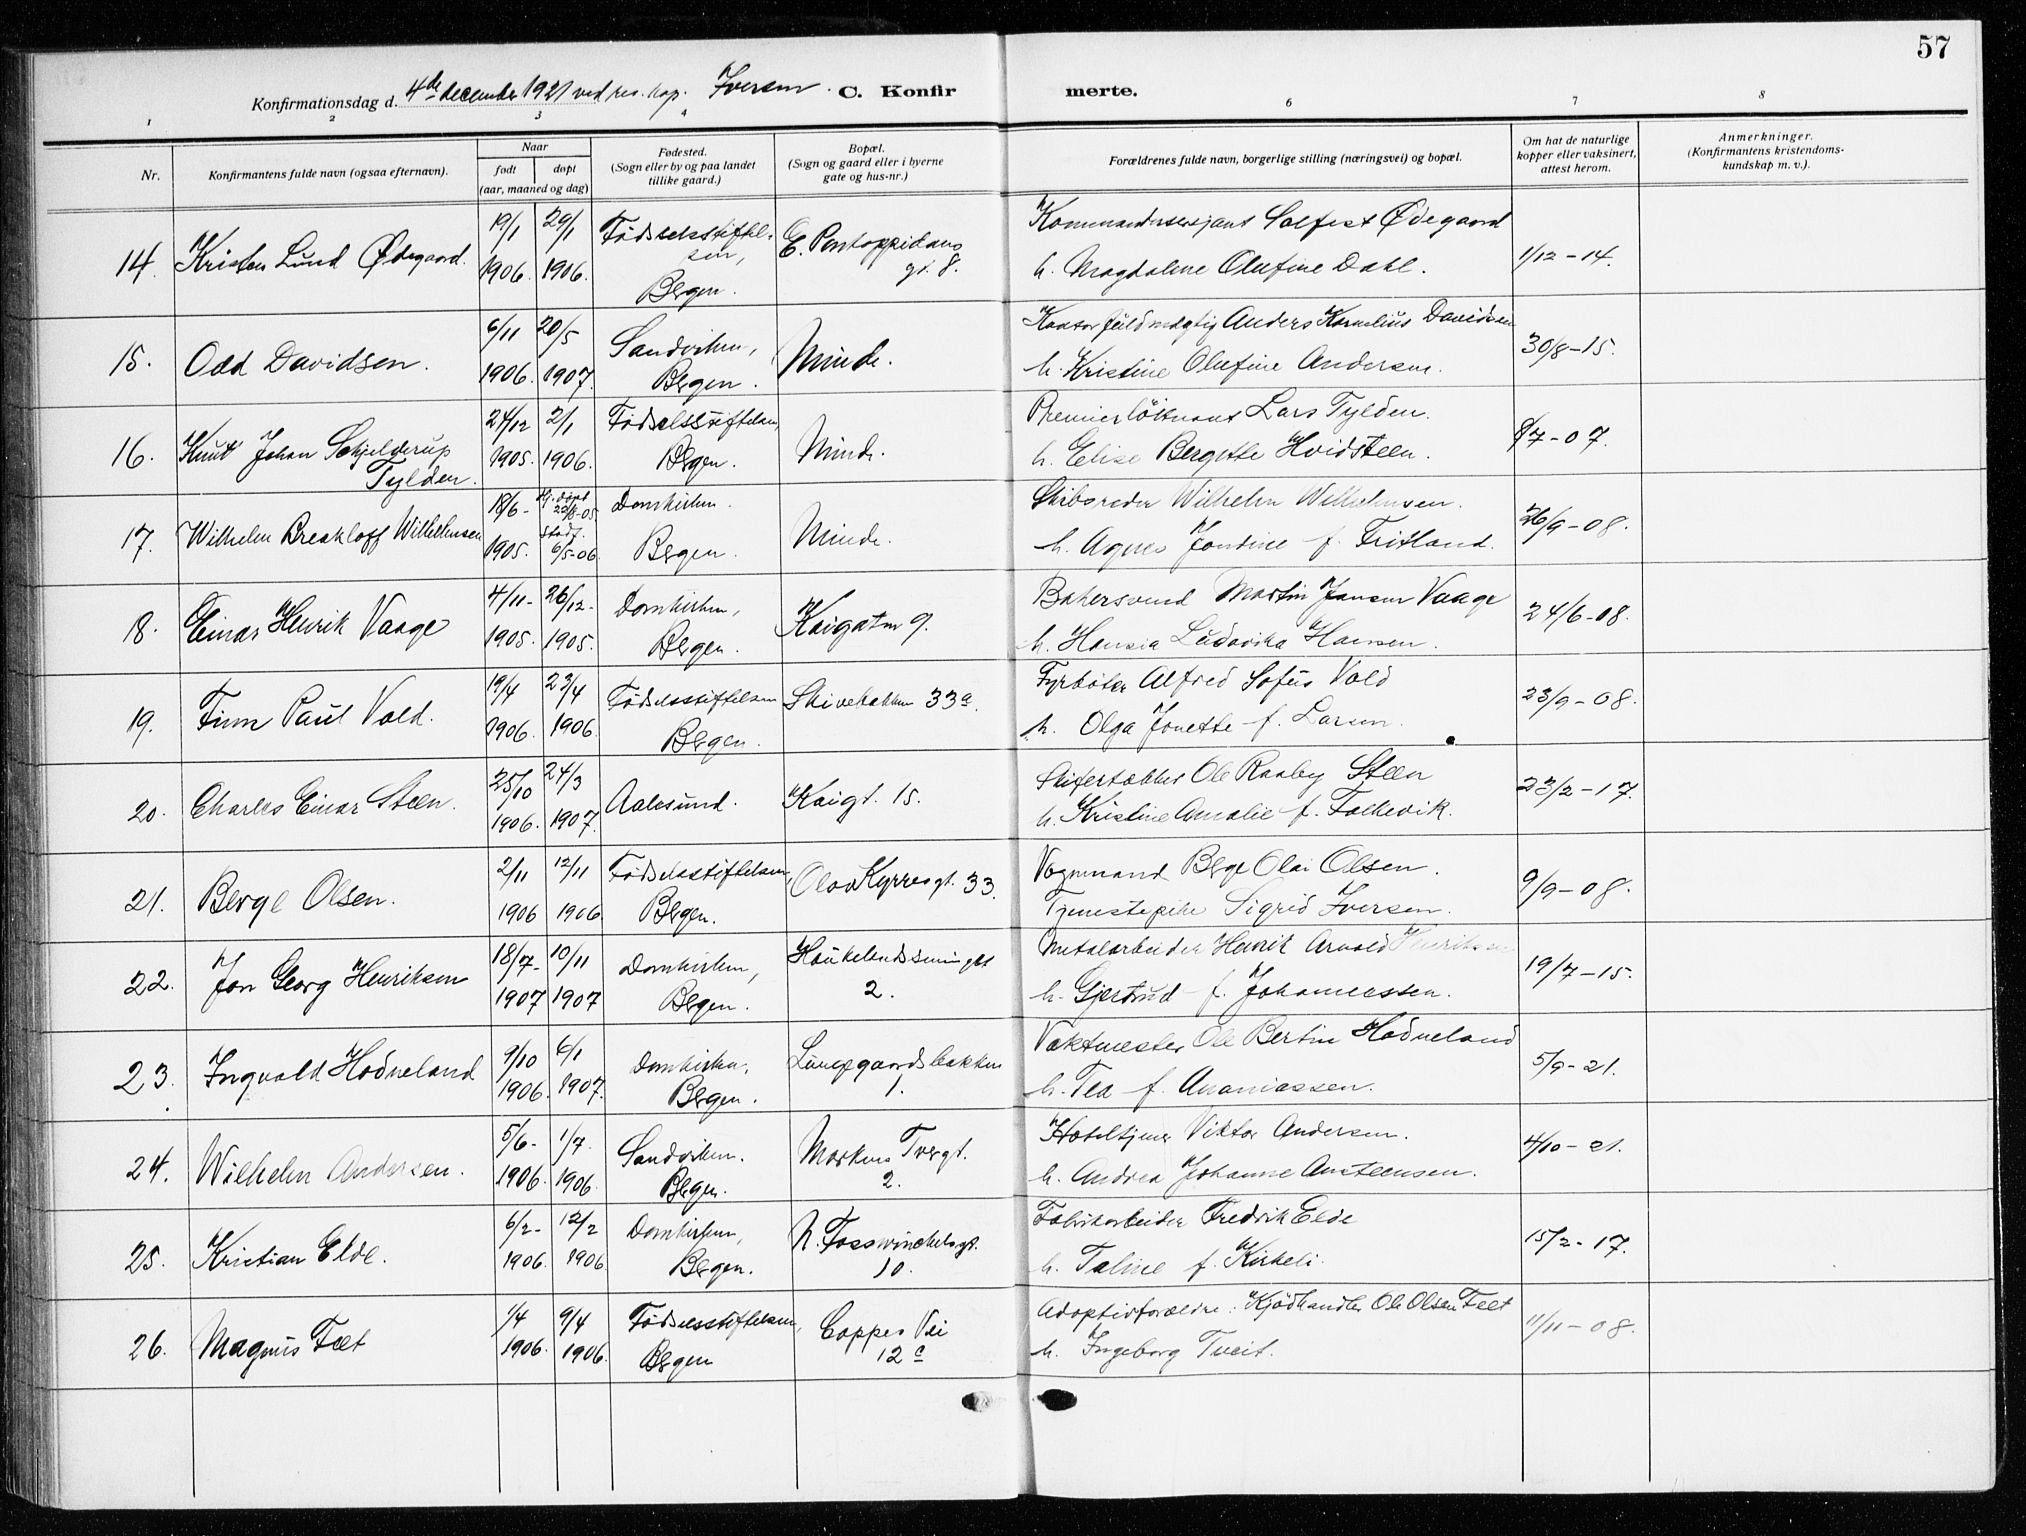 57
Konfirmationsdag d. 4de december 1921 ved res. kap. Iversen. C. Konfirmerte.
1 2 3 4 6 7 8
Nr.
Konfirmantens fulde navn (ogsaa efternavn).
Naar
født døpt
(aar, maaned og dag)
Fødested.
(Sogn eller by og paa landet
tillike gaard.)
Bopæl.
(Sogn og gaard eller i byerne
gate og hus-nr.)
Forældrenes fulde navn, borgerlige stilling (næringsvei) og bopæl.
Om hat de naturlige
kopper eller vaksinert,
attest herom.
Anmerkninger.
(Konfirmantens kristendoms-
kundskap m. v.).
14. Kristen Lund Ødegaard.
19/1 1906. 29/1 1906.
Fødselsstiftelsen,
Bergen.
E. Pontoppidans
gt. 8.
Kommandersersjant Solfest Ødegaard
h. Magdalene Olufine Dahl.
1/12-14.
15. Odd Davidsen.
6/11 1906. 20/5 1907.
Sandviken,
Bergen.
Minde.
Kontorfuldmægtig Anders Kornelius Davidsen
h. Kristine Olufine Andersen.
30/8-15.
16. Knut Johan Schjelderup
Tylden.
24/12 1905. 2/1 1906.
Fødselsstiftelsen,
Bergen.
Minde.
Premierløitnant Lars Tylden.
h. Elise Bergitte Hvidsteen.
/7-07.
17. Wilhelm Wilhelmsen
18/6- 1905. Hj. døpt 22/8-05. Stadf. 6/5-06
Domkirken.
Bergen.
Minde.
Skibsreder Wilhelm Wilhelmsen.
h. Agnes Jondine f. Fritland.
26/9-08.
18. Einar Henrik Vaage
4/11- 1905. 26/12- 1905.
Domkirken,
Bergen.
Kaigaten 9.
Bakersvend Martin Jansen Vaage
h. Hansia Ludovika Hansen.
24/6-08.
19. Finn Paul Vold.
19/4 1906. 23/4 1906.
Fødselsstiftelsen
Bergen.
Skivebakken 33a.
Fyrbøter Alfred Sofus Vold
h. Olga Jonette f. Larsen.
23/9-08.
20. Charles Einar Steen.
25/10 1906. 24/3 1907.
Aalesund.
Kaigt. 15.
Skifertækker Ole Raaby Steen
h. Kristine Amalie f. Falkevik.
23/2-17.
21. Berge Olsen.
2/11 1906 12/11 1906
Fødselsstiftelsen,
Bergen.
Olav Kyrresgt. 33.
Vognmand Berge Olai Olsen.
Tjenestepike Sigrid Iversen.
9/9-08.
22. Jon Georg Henriksen
18/7- 1907 10/11 1907
Domkirken,
Bergen.
2.
Metalarbeider Henrik Arnold Henriksen
h. Gjertrud f. Johannessen.
19/7-15.
23. Ingvald Hodneland
9/10 1906. 6/1 1907.
Domkirken,
Bergen.
Lungegaardsbakken
1.
Vaktmester Ole Bertin Hodneland
h. Tea f. Ananiassen.
5/9-21.
24. Wilhelm Andersen.
5/6- 1906. 1/7. 1906.
Sandviken.
Bergen.
Markus Tvergt.
2.
Hoteltjener Viktor Andersen.
h. Andrea Johanne Austeensen.
4/10-21.
25. Kristian Elde.
6/2- 1906. 12/2 1906
Domkirken,
Bergen.
N. Fosswinckelsgt.
10.
Fabrikarbeider Fredrik Elde
h. Taline f. Kirkeli.
15/2-17.
26. Magnus Fæt
1/4 1906. 9/4 1906.
Fødselsstiftelsen,
Bergen
Coppes Vei
12c
Adoptivforældre: Kjødhandler Ole Olsen Fæt
h. Ingeborg Tveit.
11/11-08.